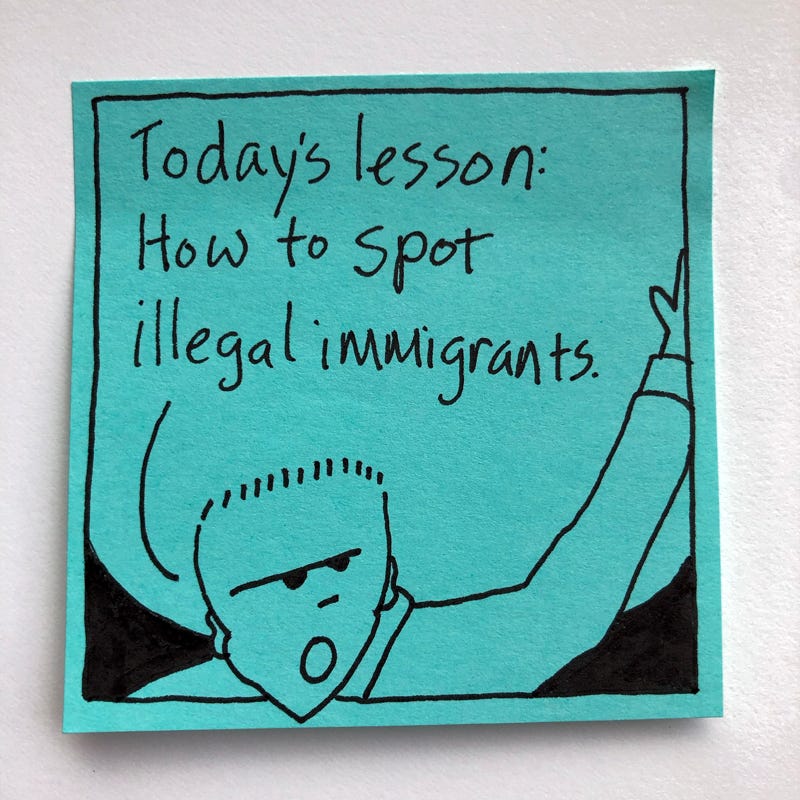 Today's lesson:
How to spot
illegal immigrants.